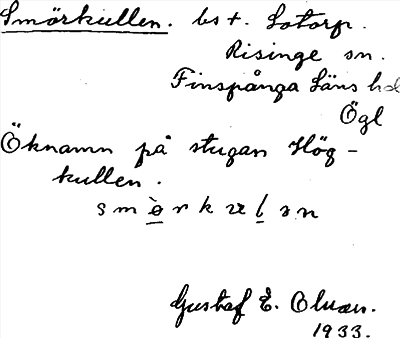 Smörkullen. bst. Lotorp.
Risinge sn.
Finspånga Läns hd
Ögl
Öknamn på stugan Hög-
kullen.
Gustaf E. Olwæn.
1933.